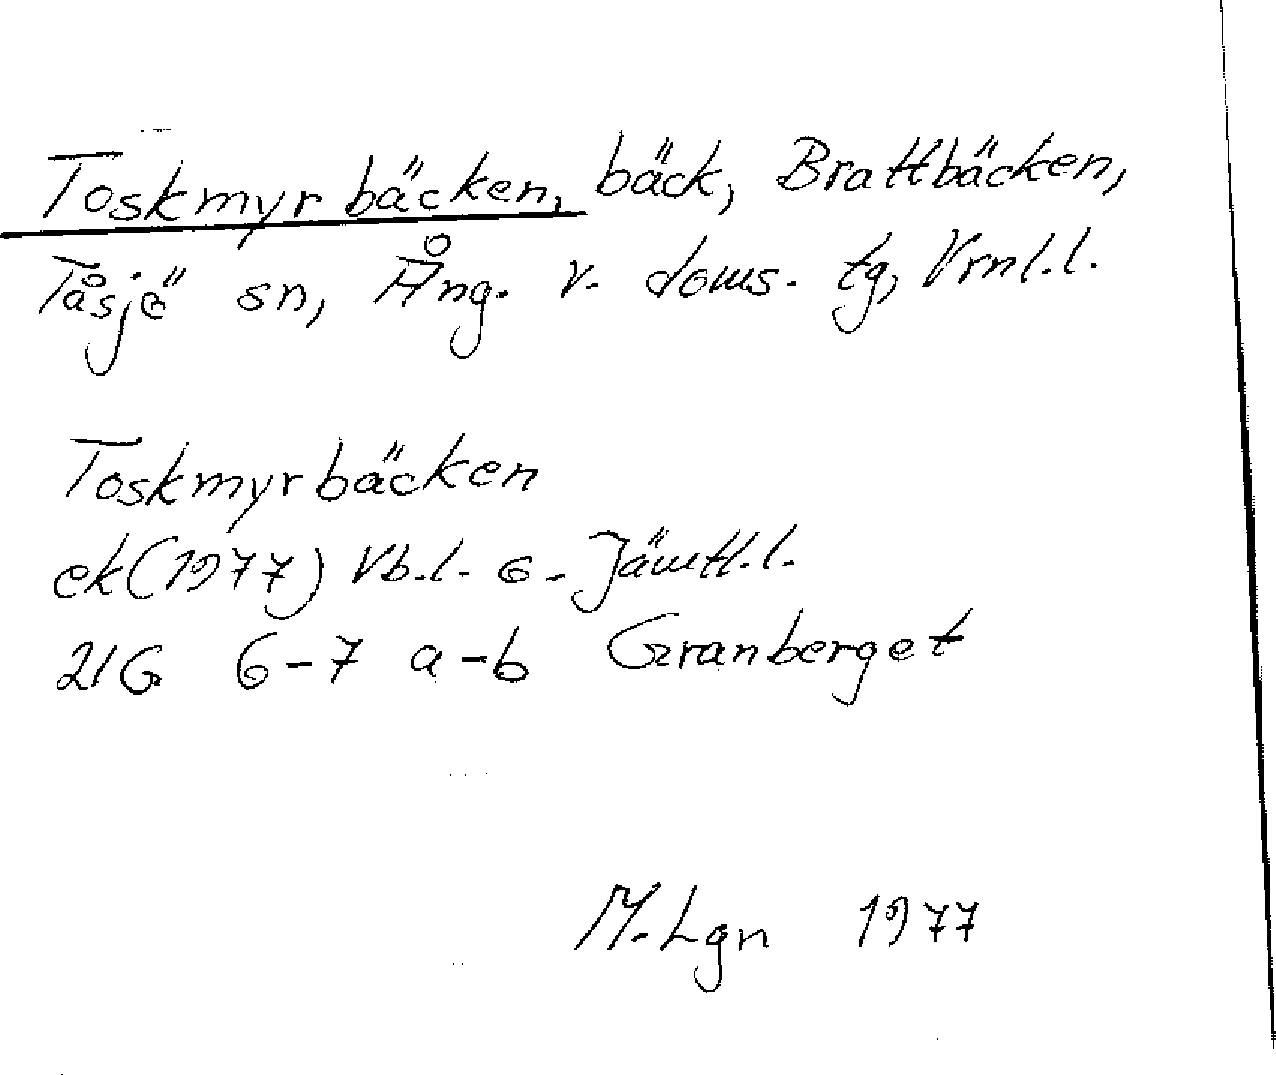 Toskmyrbäcken, bäck, Brattbäcken,
Tåsjö sn, Ång. v. doms. tg, Vrnl.l.
Toskmyrbäcken
ek(1977) Vb.l. o. Jämtl.l.
21G 6-7 a-b Granberget
M.Lgn 1977